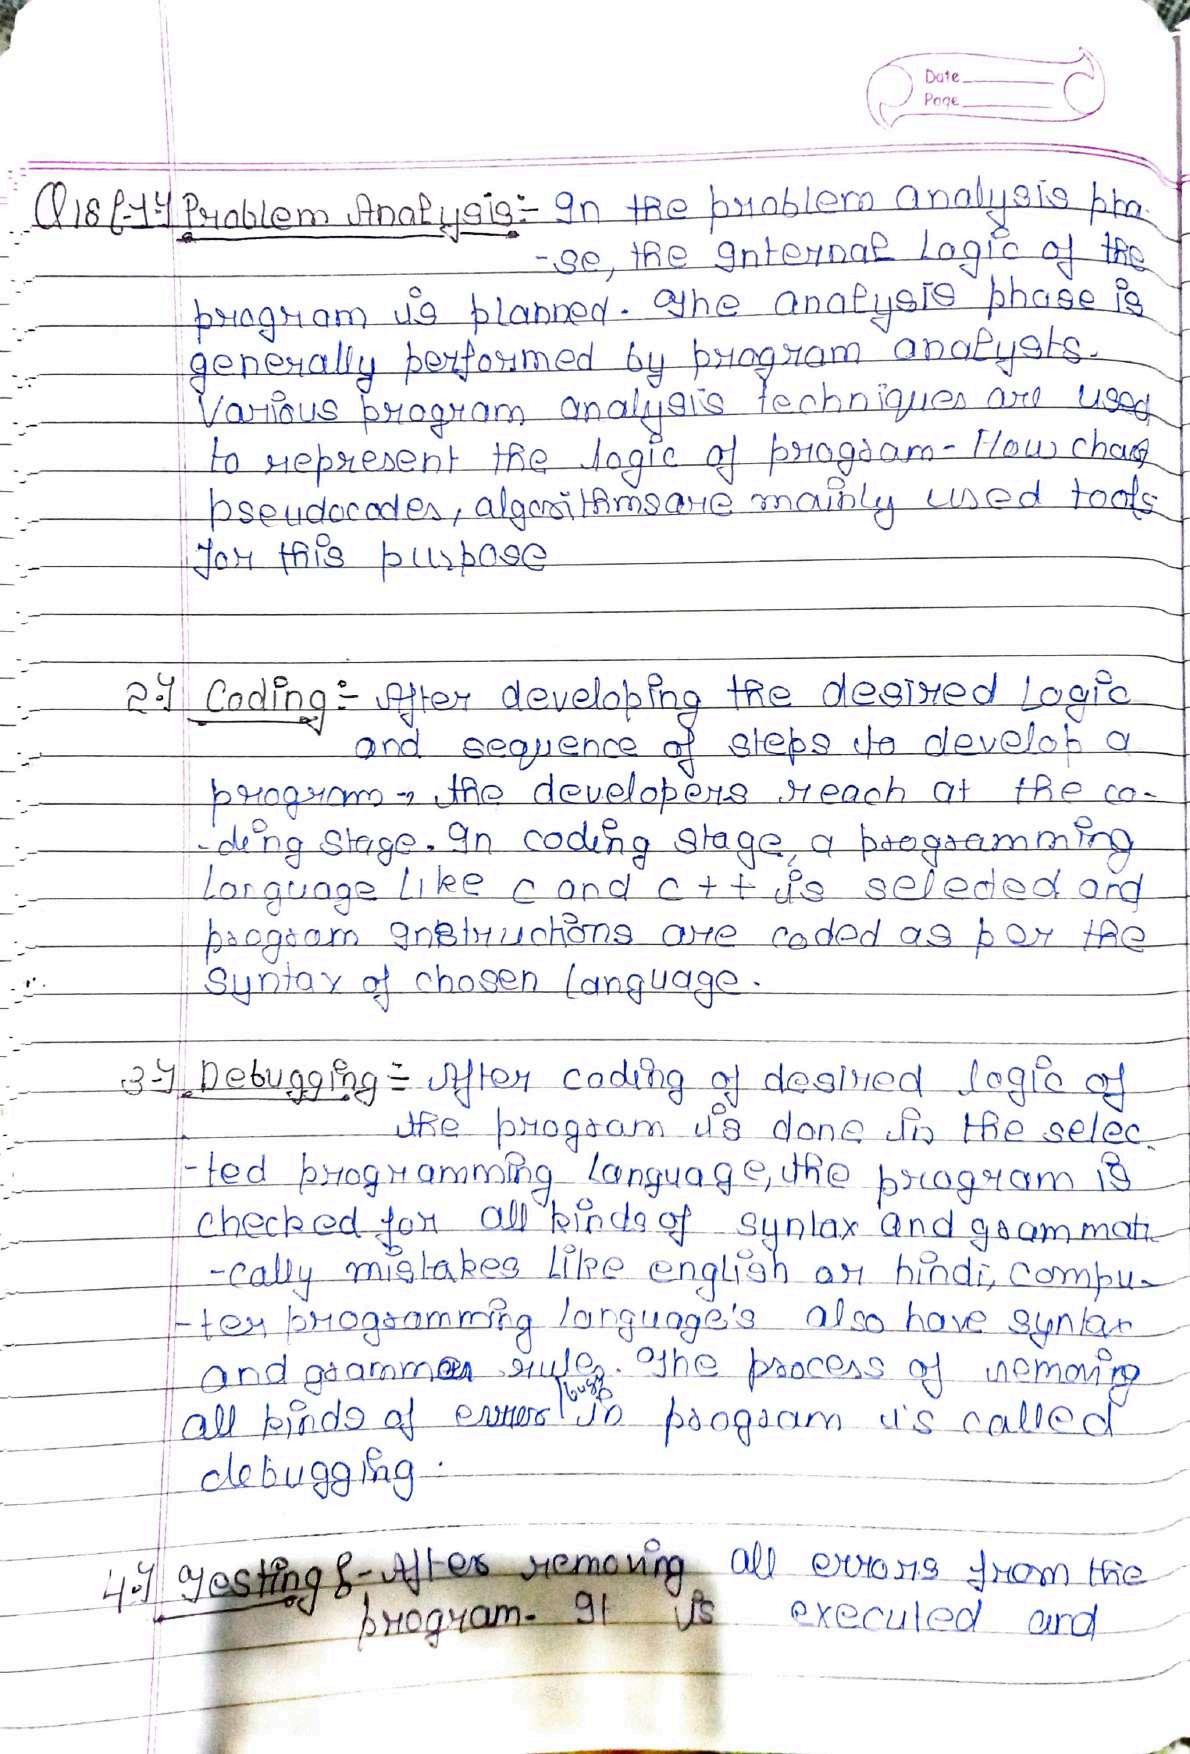 Date
Page
Problem Analysis:- In the problem analysis pha
-se, the Internal Logic of the
program is planned. The analysis phase is
generally performed by program analysts.
Various program analysis techniques are used
to represent the logic of program - Flow
pseudocodes, algorithms are mainly used tools
for this purpose
2. Coding:- After developing the desired Logic
and sequence of steps to develop a
program, the developers reach at the co-
-ding stage. In coding stage, a programming
Language Like C and C++ is selected and
program Instructions are coded as per the
Syntax of chosen Language.
3. Debugging:- After coding of desired logic of
the program is done in the selec
-ted programming Language, the program is
checked for all kinds of syntax and grammati
-cally mistakes Like english or hindi, compu-
-ter programming language's also have syntax
and grammar rules. The process of removing
all kinds of error/bugs in program is called
debugging.
4. Testing:- After removing all errors from the
program. It is executed and